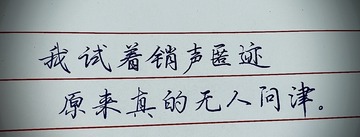 我试着销声匿迹
原来真的无人问津。